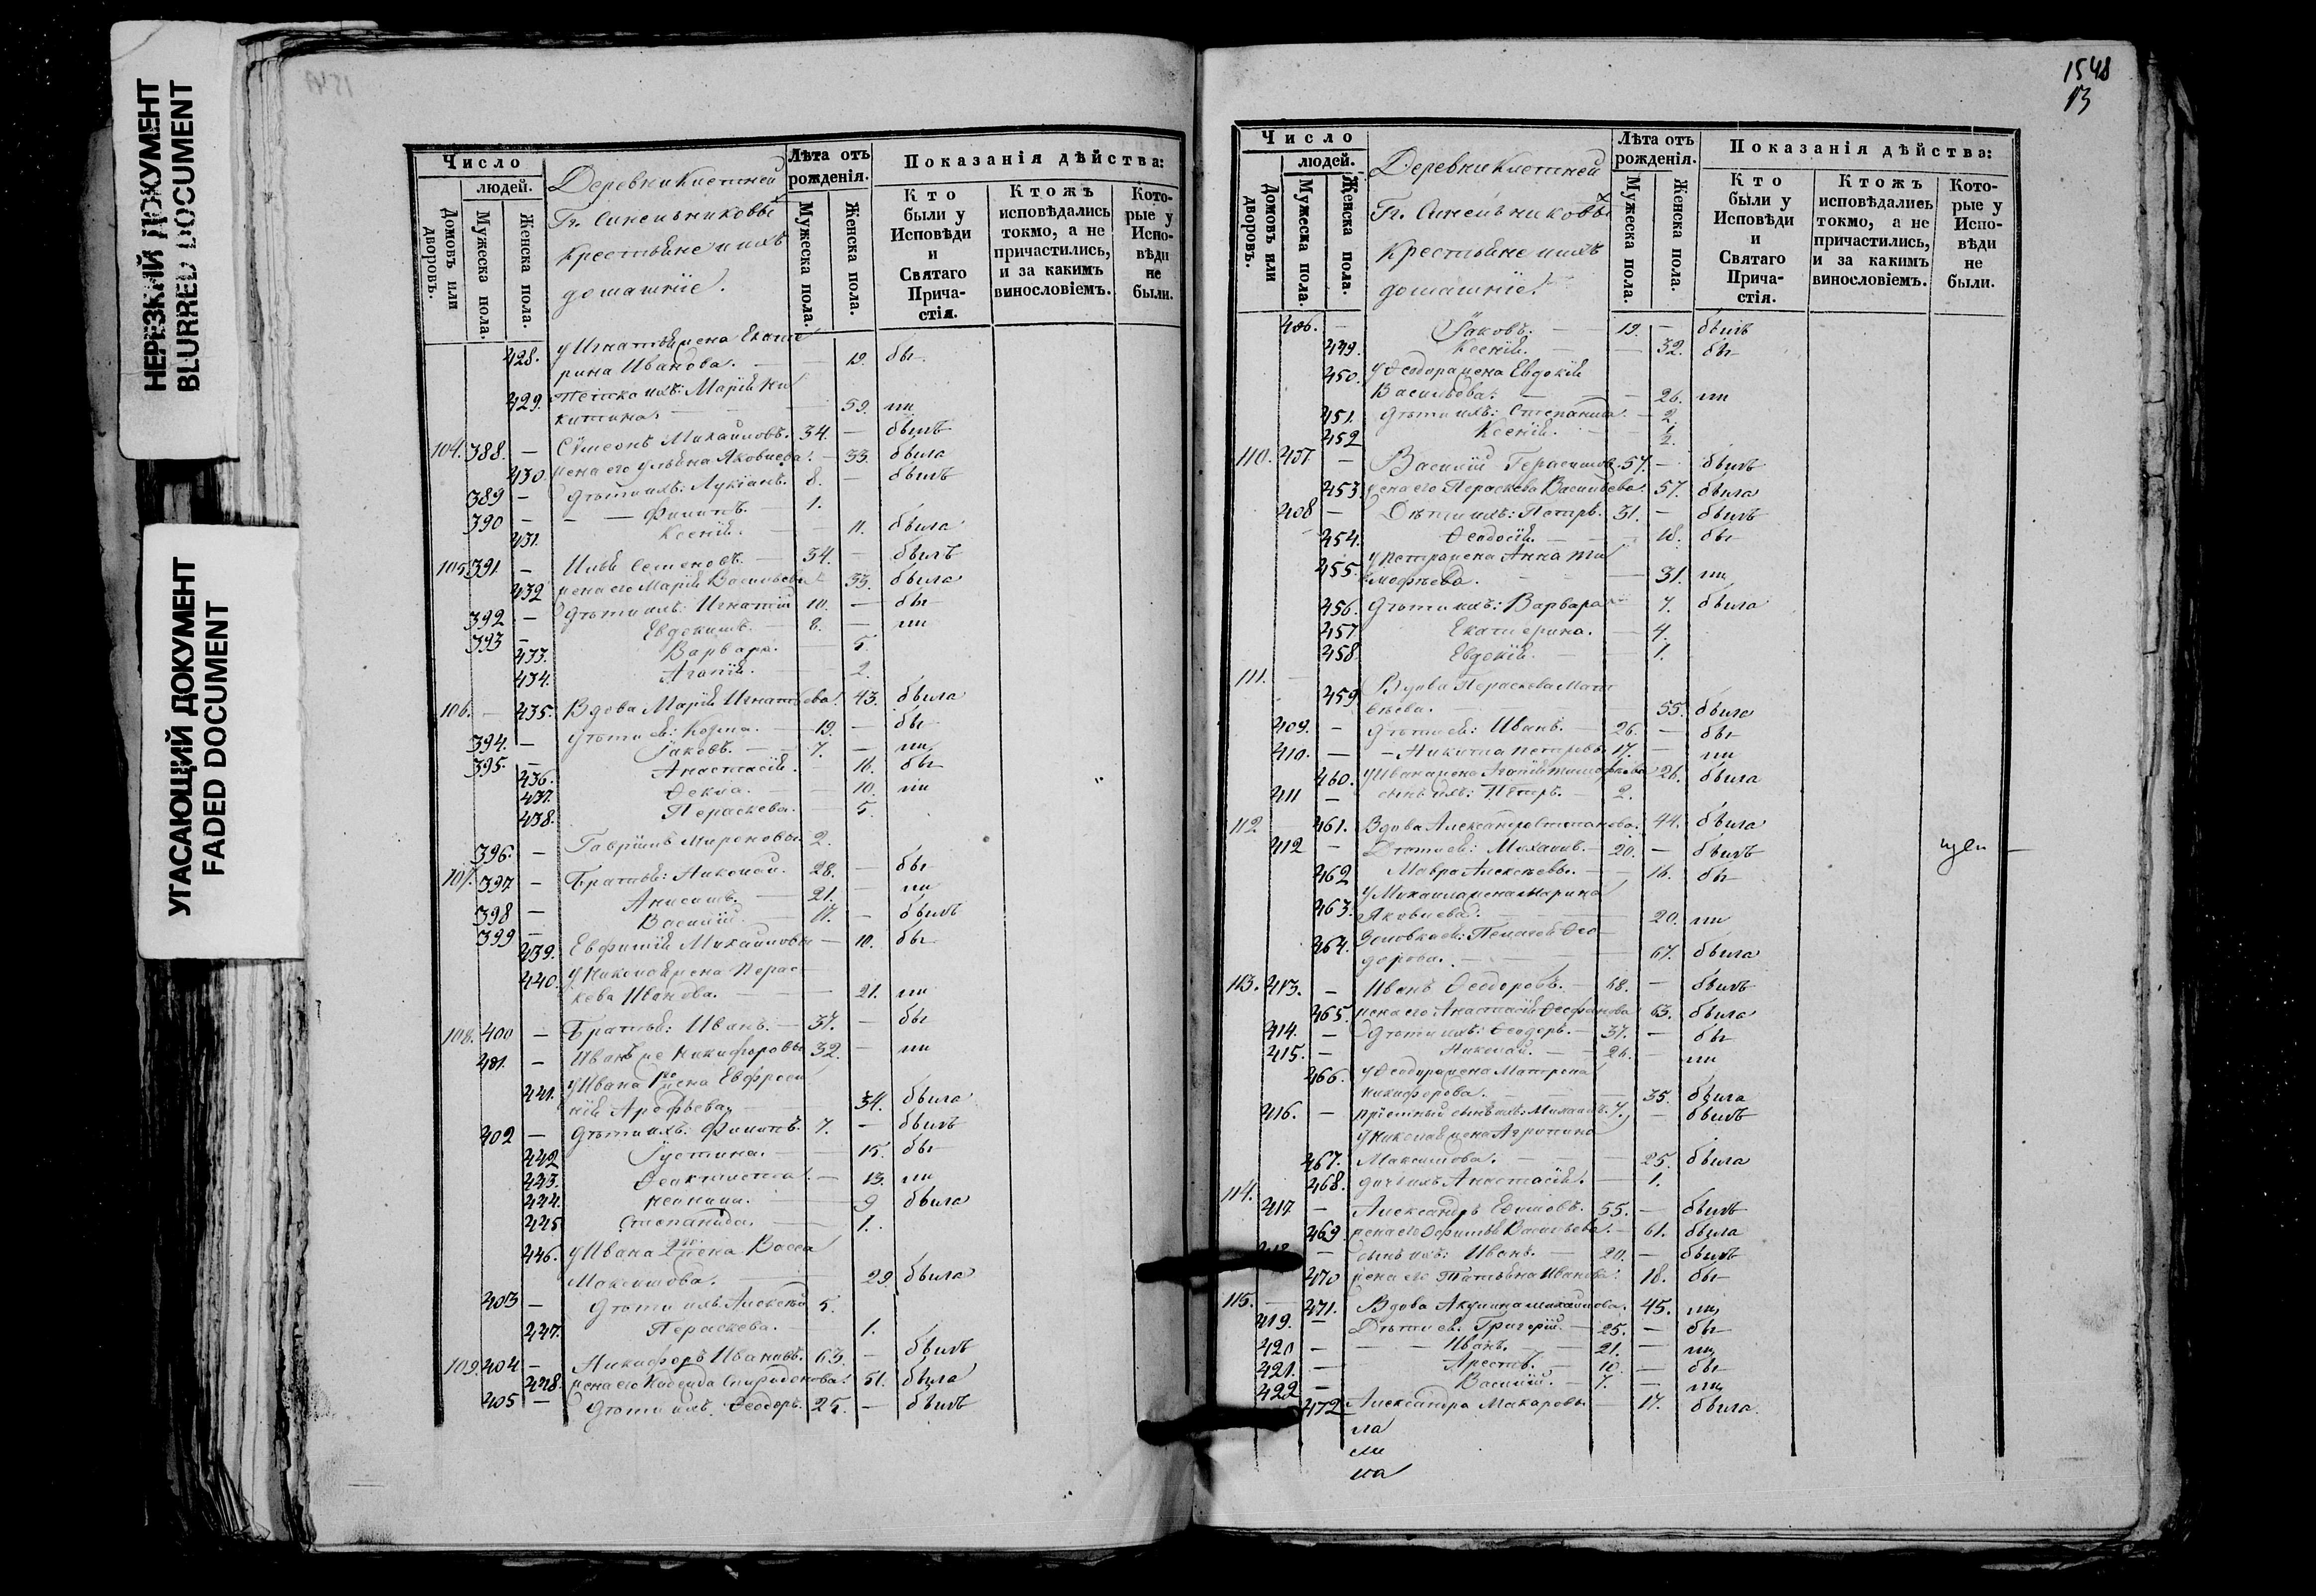 НЕРЕЗКИЙ ДОКУМЕНТ
BLURRED DOCUMENT
УГАСАЮЩИЙ ДОКУМЕНТ
FADED DOCUMENT
Число
людей.
Домовъ или дворовъ.
Мужеска пола.
Женска пола.
Деревни
Гг. Синельниковыхъ
Крестьяне и ихъ
домашніе.
Лѣта отъ рожденія.
Мужеска пола.
Женска пола.
Показанія дѣйства:
Кто были у Исповѣди и Святаго Причастія.
Ктожъ исповѣдались токмо, а не причастились, и за какимъ винословіемъ.
Которые у Исповѣди не были.
428. у Игнатья жена Екате
рина Иванова. — 19. бы
429. Тетка ихъ: Марія Ни
китина. — 59. ла
104. 388. — Симеонъ Михайловъ. 34. — былъ
430 жена его Ульяна Яковлева. — 33. была
389 — Дѣти ихъ: Лукіанъ. 8. — былъ
390 — Филипъ. — 1.
431. Ксенія. — 11. была
105 391 — Илья Семеновъ. — 34. — былъ
432 жена его Марія Васильева — 33. была
392 — Дѣти ихъ: Игнатій 10. — бы
393 — Евдокимъ. — 8. — ли
433. Варвара. — 5.
434. Агапія. — 2.
106. — 435. Вдова Марія Игнатьева. 43. была
394. — Дѣти ея: Козма. — 19. — бы
395. — Іаковъ. — 7. — ли
436. Анастасія. — 16. бы
437. Ѳекла. — 10. ли
438. Параскева. — 5.
396. — Гавріилъ Мироновъ. 2.
107. 397 — Братья: Николай. 28. — бы
398 — Анисимъ. — 21. — ли
399 — Василій. — 17. — былъ
439. Евфимія Михайловы — 10. бы
440. у Николая жена Парас
кева Иванова. — 21. ла
108. 400 — Братья: Иванъ. — 37. — бы
401. — Иванъ же Никифоровы 32. — ли
441. у Ивана 1го жена Евфроси
нія — 34. была
402 — Дѣти ихъ: Филипъ. 7. — былъ
442 Іустина. — 15. бы
443. Ѳеоктиста. — 13. ли
444. — 9 была
445 Степанида. — 1.
446. у Ивана 2го жена Васса
Максимова. — 29. была
403 — Дѣти ихъ: Алексѣй 5.
447. Параскева. — 1.
109. 404 — Никифоръ Ивановъ. 63. — былъ
448. жена его Надежда Спиридонова. 61. была
405 — Дѣти ихъ: Ѳеодоръ. 25. — былъ
1548
13
Число
людей.
Домовъ или дворовъ.
Мужеска пола.
Женска пола.
Деревни
Гг. Синельниковыхъ
Крестьяне и ихъ
домашніе.
Лѣта отъ рожденія.
Мужеска пола.
Женска пола.
Показанія дѣйства:
Кто были у Исповѣди и Святаго Причастія.
Ктожъ исповѣдались токмо, а не причастились, и за какимъ винословіемъ.
Которые у Исповѣди не были.
406. — Іаковъ. — 19. — былъ
449. Ксенія. — 32. бы
450. у Ѳеодора жена Евдокія
Васильева. — 26. ли
451. Дѣти ихъ: Степанида. — 2.
452 Ксенія. — ½.
110. 407 — Василій Герасимовъ. 57. — былъ
453 жена его Параскева Васильева. 57. была
408 — Дѣти ихъ: Петръ. 31. — былъ
454. Ѳеодосія. — 18. бы
455. у Петра жена Анна Ти
мофѣева. — 31. ли
456. Дѣти ихъ: Варвара — 7. была
457 Екатерина. — 4.
458 Евдокія. — 1.
111. — 459 Вдова Параскева Мат
вѣева. — 55. была
409. — Дѣти ея: Иванъ. — 26. — бы
410. — Никита Петровы 17. — ли
460. у Ивана жена Агапія Тимофѣева 26. была
411 — сынъ ихъ: Петръ. — 2.
112 — 461. Вдова Александра Степанова. 44. была
412 — Дѣти ея: Михаилъ. — 20. — былъ
462 Мавра Алексѣевы. — 16. бы
463. у Михаила жена Марина
Яковлева. — 20. ли
464. Золовка ея: Пелагея Ѳео
дорова. — 67. была
113. 413. — Иванъ Ѳеодоровъ. — 68. — былъ
465. жена его Анастасія Ѳеофанова 63. была
414. — Дѣти ихъ: Ѳеодоръ. — 37. — бы
415. — Николай. — 26. — ли
466. у Ѳеодора жена Матрона
Никифорова. — 35. была
416. — пріемный сынъ ихъ: Михаилъ. 7. — былъ
у Николая жена Агрипина
467. Максимова. — 25. была
468. дочь ихъ Анастасія. — 1.
114. 417 — Александръ Ефимовъ. 55. — былъ
469. жена его Евфимія Васильева. — 61. была
418 — сынъ ихъ: Иванъ. — 20. — былъ
470 жена его Татьяна Иванова. 18. бы
115. — 471. Вдова Акулина Михайлова. 45. ли
419. — Дѣти ея: Григорій. — 25. — бы
420 — Иванъ. — 21. — ли
421. — Орестъ. — 10. — бы
422 — Василій. — 7. — ли
472 Александра Макаровы — 17. была
ла
ли
ла